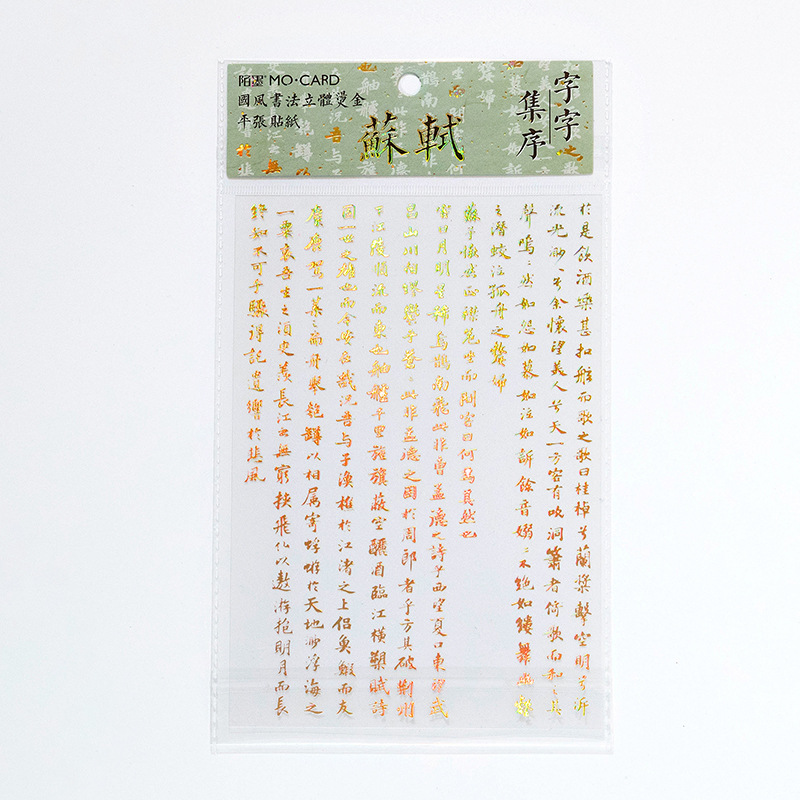 陌墨 MO·CARD
國風書法立體燙金
平張貼紙
蘇軾
字字
集序
於是飲酒樂甚扣舷而歌之歌曰桂棹兮蘭槳擊空明兮泝
流光渺、兮余懷望美人兮天一方客有吹洞簫者倚歌而和、其
聲嗚、然如怨如慕如泣如訴餘音嫋、不絕如縷舞幽壑
之潛蛟泣孤舟之嫠婦
蘇子愀然正襟危坐而問客曰何為其然也
客曰月明星稀烏鵲南飛此非曹孟德之詩乎西望夏口東望武
昌山川相繆鬱乎蒼、此非孟德之困於周郎者乎方其破荊州
下江陵順流而東也舳艫千里旌旗蔽空釃酒臨江橫槊賦詩
固一世之雄也而今安在哉況吾與子漁樵於江渚之上侶魚蝦而友
麋鹿駕一葉之扁舟舉匏樽以相屬寄蜉蝣於天地渺浮海之
一粟哀吾生之須臾羨長江之無窮挾飛仙以遨遊抱明月而長
終知不可乎驟得託遺響於悲風